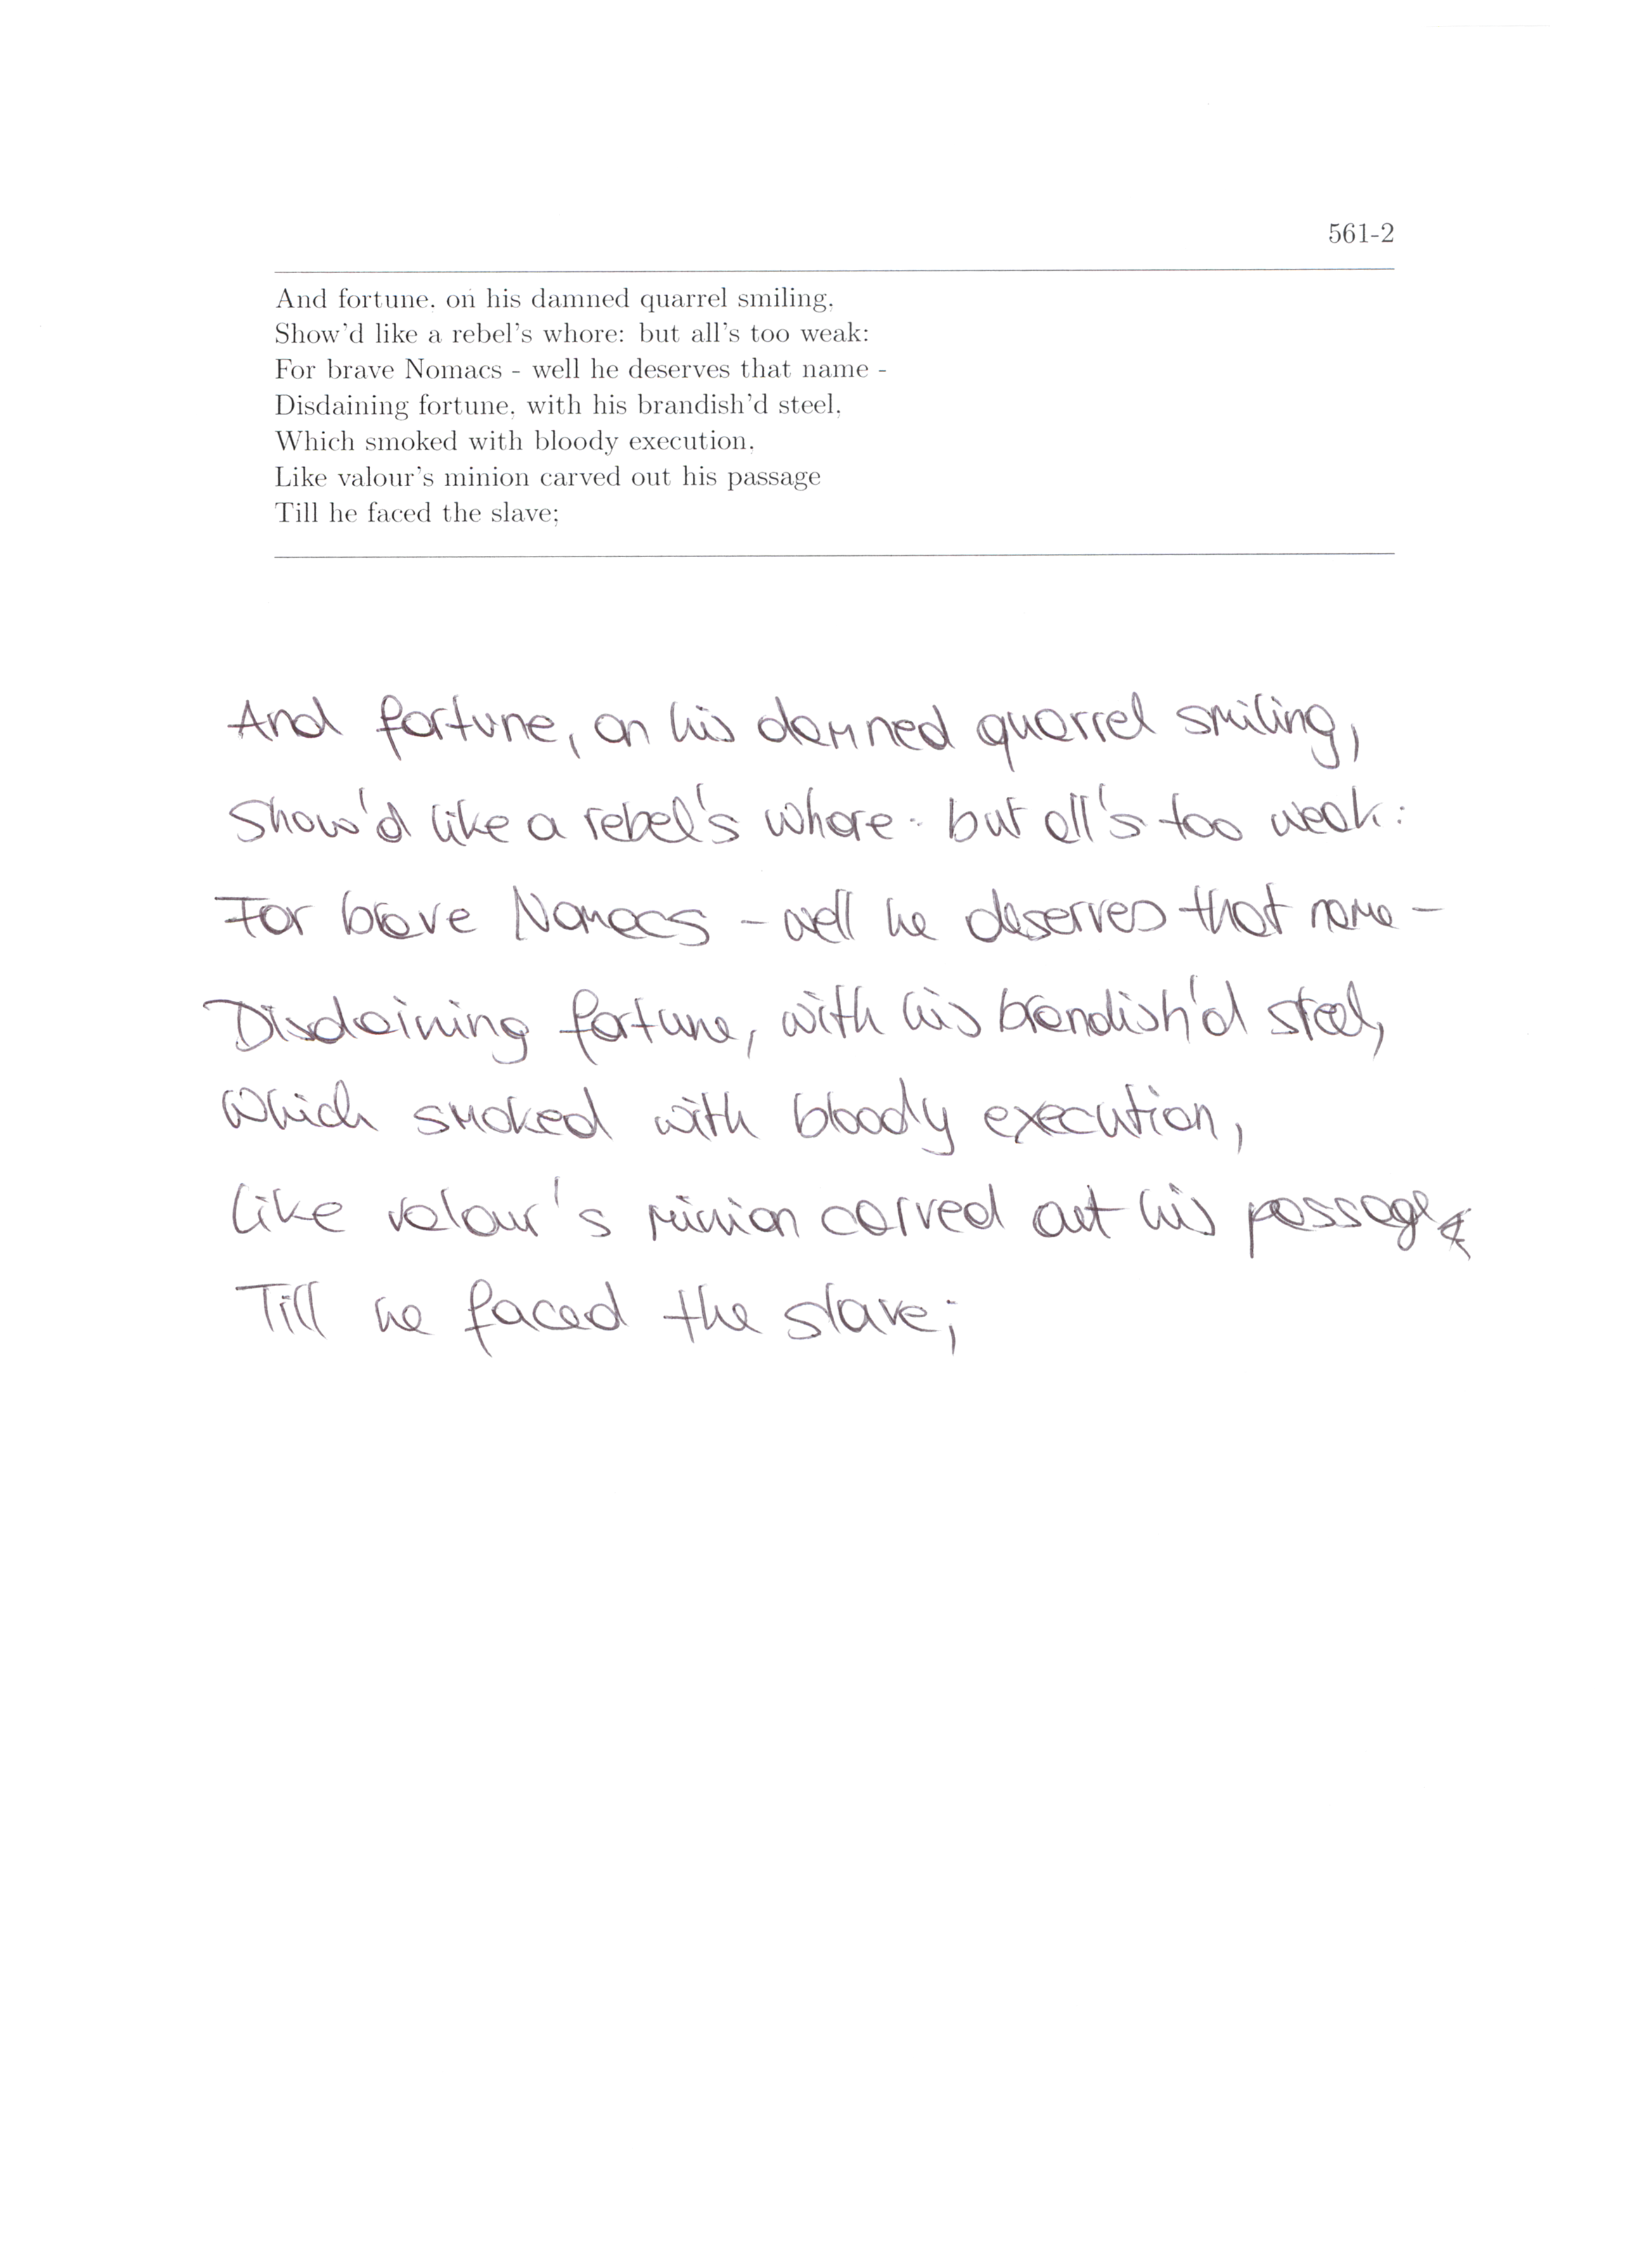 561-2
And fortune, on his damned quarrel smiling,
Show'd like a rebel's whore: but all's too weak:
For brave Nomacs - well he deserves that name -
Disdaining fortune, with his brandish'd steel,
Which smoked with bloody execution,
Like valour's minion carved out his passage
Till he faced the slave;
And fortune, on his damned quarrel smiling,
Show'd like a rebel's whore: but all's too weak:
For brave Nomacs - well he deserves that name -
Disdaining fortune, with his brandish'd steel,
Which smoked with bloody execution,
Like valour's minion carved out his passage
Till he faced the slave;